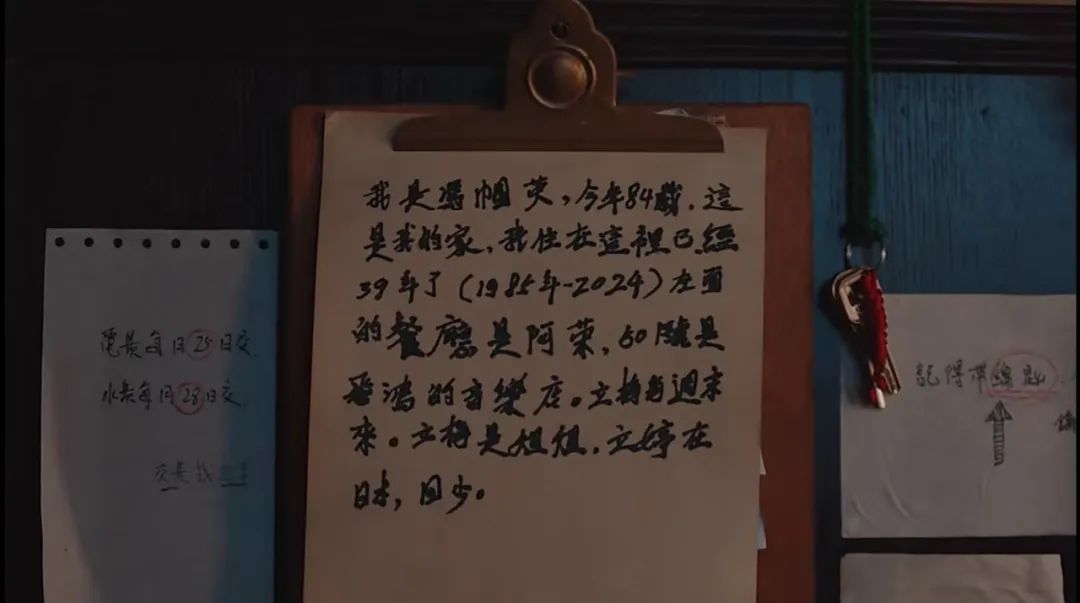 電費每月25日交
水費每月28日交
我是馮幗英，今年84歲，這
是我的家，我住在這裡已經
39年了（1985年-2024）左面
的餐廳是阿荣，60號是
的音樂店。立梅每週末
來。立梅是姐姐，立婷在
日本，回少。
記得帶鑰匙